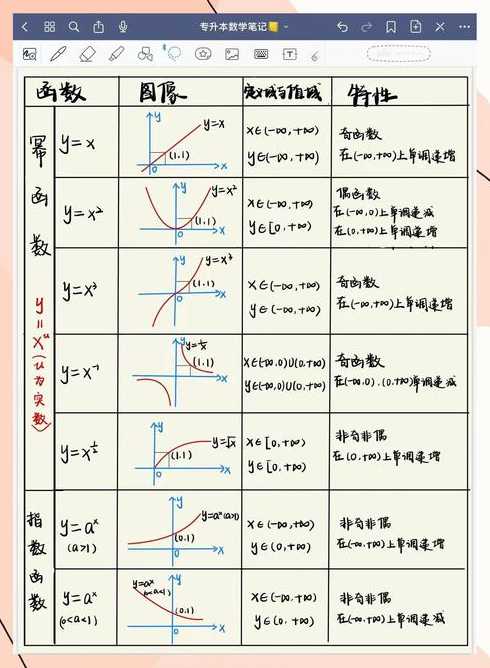 专升本数学笔记
函数 图像 定义域与值域 特性
幂函数 y=xᵘ(u为实数)
y=x
y
y=x
(1,1)
0
x
x∈(-∞,+∞)
y∈(-∞,+∞)
奇函数
在(-∞,+∞)上单调递增
y=x²
y
y=x²
(1,1)
0
x
x∈(-∞,+∞)
y∈[0,+∞)
偶函数
在(-∞,0)上单调递减
在(0,+∞)上单调递增
y=x³
y
y=x³
(1,1)
0
x
x∈(-∞,+∞)
y∈(-∞,+∞)
奇函数
在(-∞,+∞)上单调递增
y=x⁻¹
y
y=1/x
(1,1)
0
x
x∈(-∞,0)∪(0,+∞)
y∈(-∞,0)∪(0,+∞)
奇函数
在(-∞,0),(0,+∞)单调递减
y=x^½
y
y=√x
(1,1)
0
x
x∈[0,+∞)
y∈[0,+∞)
非奇非偶
在(0,+∞)上单调递增
指数函数
y=aˣ
(a>1)
y
y=aˣ(a>1)
(0,1)
0
x
x∈(-∞,+∞)
y∈(0,+∞)
非奇非偶
在(-∞,+∞)上单调递增
y=aˣ
(0<a<1)
y
y=aˣ
(0<a<1)
(0,1)
0
x
x∈(-∞,+∞)
y∈(0,+∞)
非奇非偶
在(-∞,+∞)上单调递减